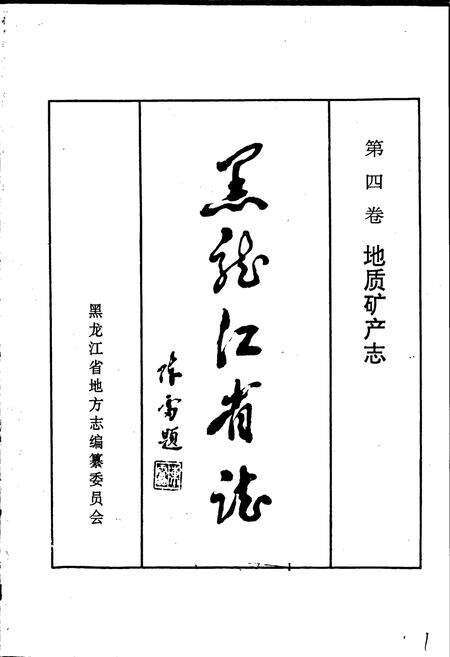 第四卷 地质矿产志
黑龙江省誌
陈雷题
黑龙江省地方志编纂委员会
1